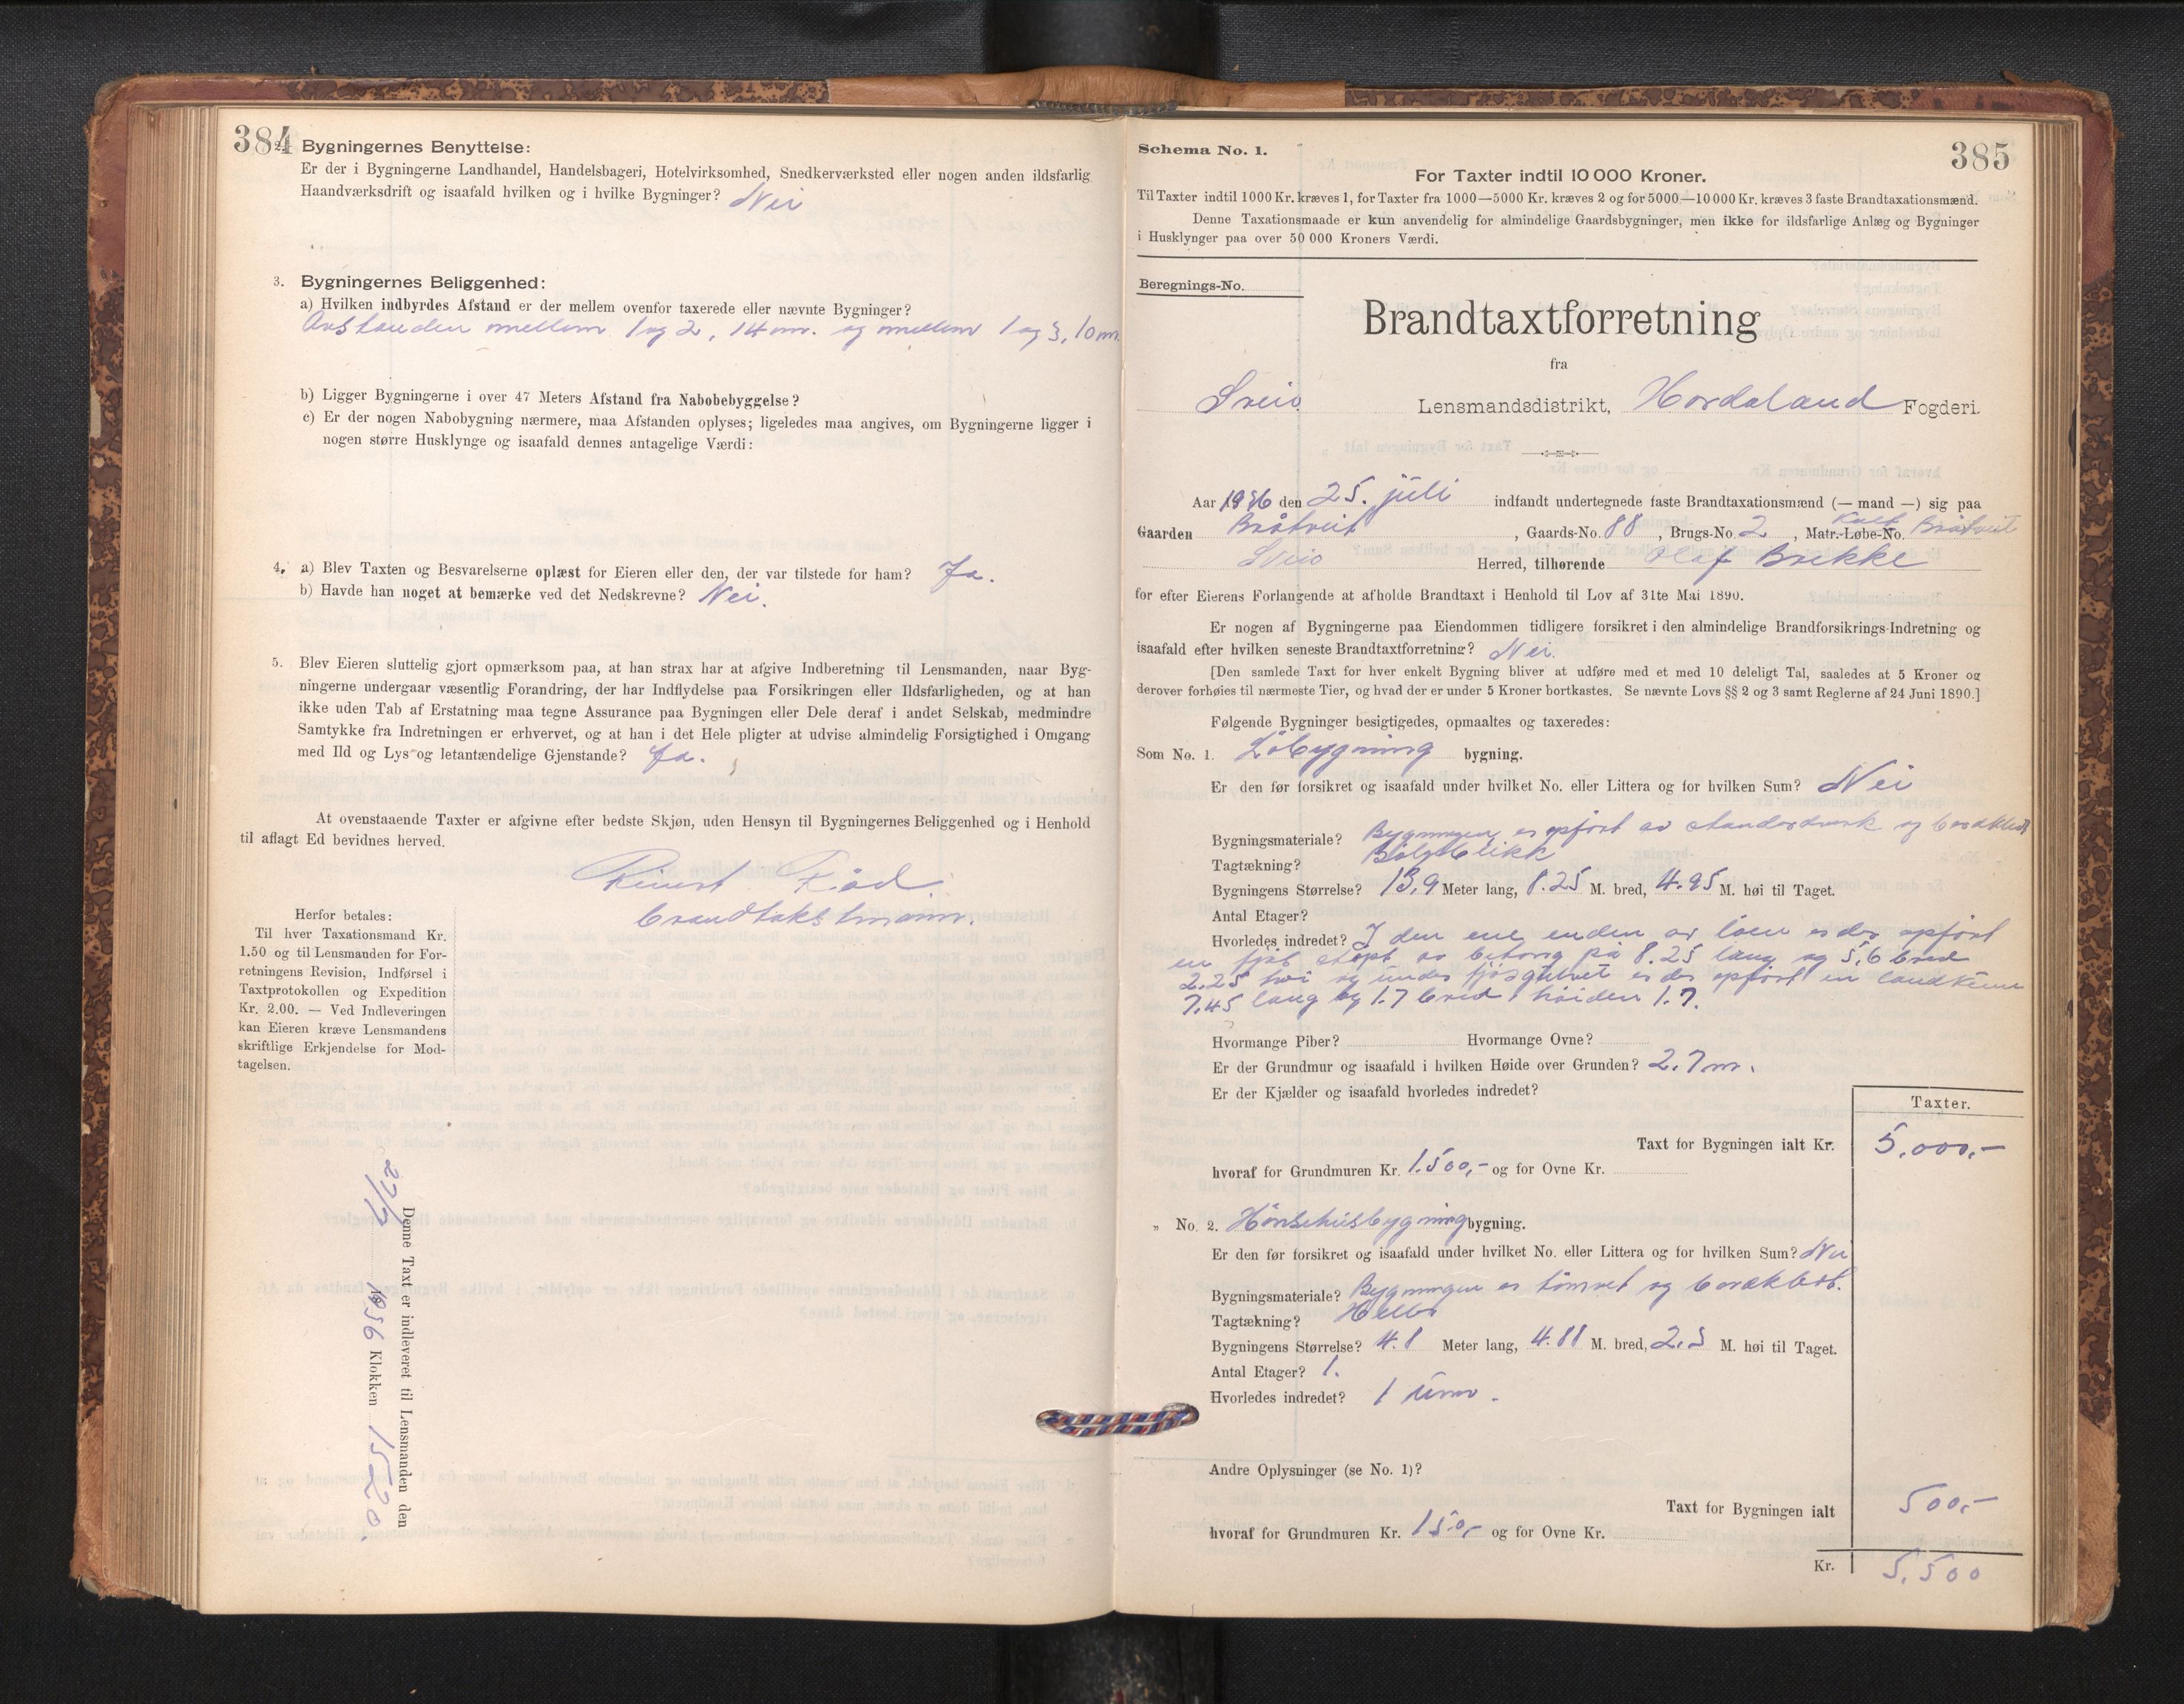 384
Bygningernes Benyttelse:
Er der i Bygningerne Landhandel, Handelsbageri, Hotelvirksomhed, Snedkerværksted eller nogen anden ildsfarlig
Haandværksdrift og isaafald hvilken og i hvilke Bygninger? Nei
3. Bygningernes Beliggenhed:
a) Hvilken indbyrdes Afstand er der mellem ovenfor taxerede eller nævnte Bygninger?
Avstanden mellem 1 og 2, 14 m. og mellem 1 og 3, 10 m.
b) Ligger Bygningerne i over 47 Meters Afstand fra Nabobebyggelse?
c) Er der nogen Nabobygning nærmere, maa Afstanden oplyses; ligeledes maa angives, om Bygningerne ligger i
nogen større Husklynge og isaafald dennes antagelige Værdi:
4. a) Blev Taxten og Besvarelserne oplæst for Eieren eller den, der var tilstede for ham? Ja.
b) Havde han noget at bemærke ved det Nedskrevne? Nei.
5. Blev Eieren sluttelig gjort opmærksom paa, at han strax har at afgive Indberetning til Lensmanden, naar Byg-
ningerne undergaar væsentlig Forandring, der har Indflydelse paa Forsikringen eller Ildsfarligheden, og at han
ikke uden Tab af Erstatning maa tegne Assurance paa Bygningen eller Dele deraf i andet Selskab, medmindre
Samtykke fra Indretningen er erhvervet, og at han i det Hele pligter at udvise almindelig Forsigtighed i Omgang
med Ild og Lys og letantændelige Gjenstande? Ja.
At ovenstaaende Taxter er afgivne efter bedste Skjøn, uden Hensyn til Bygningernes Beliggenhed og i Henhold
til aflagt Ed bevidnes herved.
brandtakstmann.
Herfor betales:
Til hver Taxationsmand Kr.
1.50 og til Lensmanden for For-
retningens Revision, Indførsel i
Taxtprotokollen og Expedition
Kr. 2.00. — Ved Indleveringen
kan Eieren kræve Lensmandens
skriftlige Erkjendelse for Mod-
tagelsen.
Denne Taxt er indleveret til Lensmanden den
27/7 1936 Klokken 15.20.
385
Schema No. 1.
For Taxter indtil 10 000 Kroner.
Til Taxter indtil 1000 Kr. kræves 1, for Taxter fra 1000—5000 Kr. kræves 2 og for 5000—10 000 Kr. kræves 3 faste Brandtaxationsmænd.
Denne Taxationsmaade er kun anvendelig for almindelige Gaardsbygninger, men ikke for ildsfarlige Anlæg og Bygninger
i Husklynger paa over 50 000 Kroners Værdi.
Beregnings-No.
Brandtaxtforretning
fra
Sveio Lensmandsdistrikt, Hordaland Fogderi.
Aar 1936 den 25. juli indfandt undertegnede faste Brandtaxationsmænd (— mand —) sig paa
Gaarden Bråtveit, Gaards-No. 88, Brugs-No. 2, Matr.-Løbe-No. Bråtveit
Sveio Herred, tilhørende Olaf Brekke
for efter Eierens Forlangende at afholde Brandtaxt i Henhold til Lov af 31te Mai 1890.
Er nogen af Bygningerne paa Eiendommen tidligere forsikret i den almindelige Brandforsikrings-Indretning og
isaafald efter hvilken seneste Brandtaxtforretning? Nei.
[Den samlede Taxt for hver enkelt Bygning bliver at udføre med et med 10 deleligt Tal, saaledes at 5 Kroner og
derover forhøies til nærmeste Tier, og hvad der er under 5 Kroner bortkastes. Se nævnte Lovs §§ 2 og 3 samt Reglerne af 24 Juni 1890.]
Følgende Bygninger besigtigedes, opmaaltes og taxeredes:
Som No. 1. Löbygning bygning.
Er den før forsikret og isaafald under hvilket No. eller Littera og for hvilken Sum? Nei
Bygningsmateriale? Bygningen er opfört av standerdverk og bordkledt
Tagtækning? Bölgeblikk
Bygningens Størrelse? 13,9 Meter lang, 8.25 M. bred, 4.95 M. høi til Taget.
Antal Etager?
Hvorledes indredet? I den ene enden av löen er der opfört
en fjös stöpt av betong på 8.25 lang og 5,6 bred
2.25 höi og under fjösgulvet er der opfört en landkum
7,45 lang og 1.7 bred höiden 1.7.
Hvormange Piber? Hvormange Ovne?
Er der Grundmur og isaafald i hvilken Høide over Grunden? 2.7 m.
Er der Kjælder og isaafald hvorledes indredet?
Taxter.
Taxt for Bygningen ialt Kr. 5.000,-
hvoraf for Grundmuren Kr. 1.500,- og for Ovne Kr.
„ No. 2. Hönsehusbygning bygning.
Er den før forsikret og isaafald under hvilket No. eller Littera og for hvilken Sum? Nei
Bygningsmateriale? Bygningen er tömret og bordkledt.
Tagtækning? Heller
Bygningens Størrelse? 4.8 Meter lang, 4.88 M. bred, 2.3 M. høi til Taget.
Antal Etager? 1.
Hvorledes indredet? 1 rum.
Andre Oplysninger (se No. 1)?
Taxt for Bygningen ialt 500,-
hvoraf for Grundmuren Kr. 150,- og for Ovne Kr.
Kr. 5.500